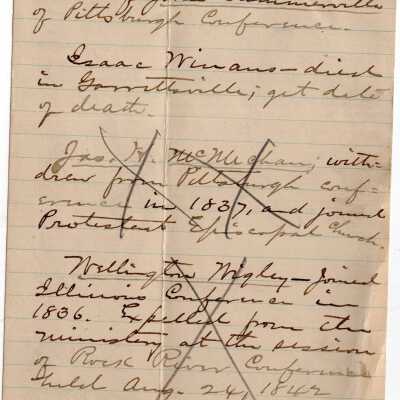 of Pittsburgh Conference.
Isaac Winans—died
in Garrettsville; get date
of death.
Jas. K. McMechan; with-
drew from Pittsburgh conf-
erence in 1837, and joined
Protestant Episcopal Church.
Wellington Wigley—Joined
Illinois Conference in
1836. Expelled from the
ministry at the session
of Rock River Conference
held Aug. 24, 1842